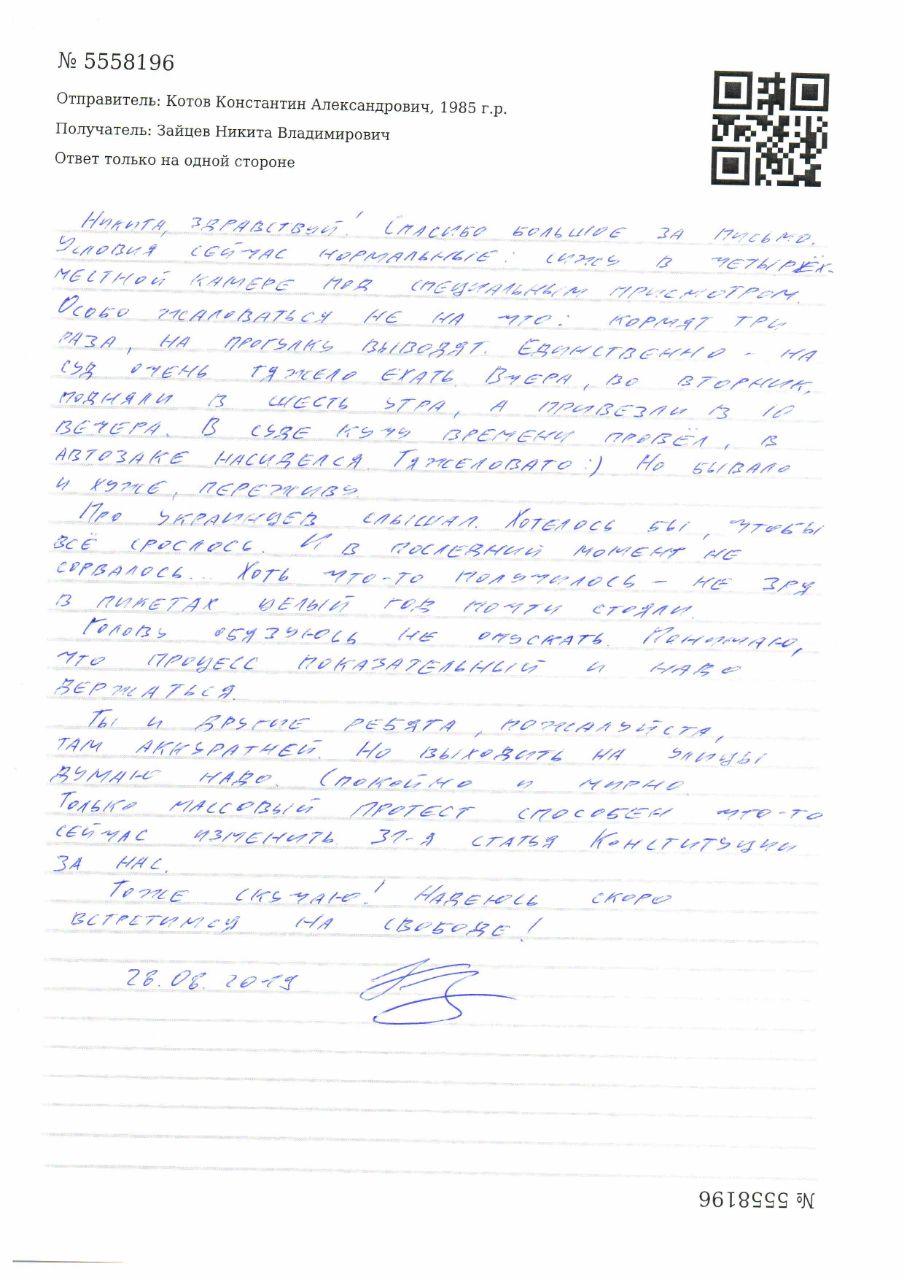 № 5558196
Отправитель: Котов Константин Александрович, 1985 г.р.
Получатель: Зайцев Никита Владимирович
Ответ только на одной стороне
Никита, здравствуй! Спасибо большое за письмо.
Условия сейчас нормальные: сижу в четырёх-
местной камере под специальным присмотром.
Особо жаловаться не на что: кормят три
раза, на прогулку выводят. Единственно - на
суд очень тяжело ехать. Вчера, во вторник,
подняли в шесть утра, а привезли в 10
вечера. В суде кучу времени провёл, в
автозаке насиделся. Тяжеловато :) Но бывало
и хуже, переживу.
Про украинцев слышал. Хотелось бы, чтобы
всё срослось. И в последний момент не
сорвалось... Хоть что-то получилось - не зря
в пикетах целый год почти стояли.
Голову обязуюсь не опускать. Понимаю,
что процесс показательный и надо
держаться.
Ты и другие ребята, пожалуйста,
там аккуратней. Но выходить на улицы
думаю надо. Спокойно и мирно.
Только массовый протест способен что-то
сейчас изменить. 31-я статья Конституции
за нас.
Тоже скучаю! Надеюсь скоро
встретимся на свободе!
28.08.2019
№ 5558196